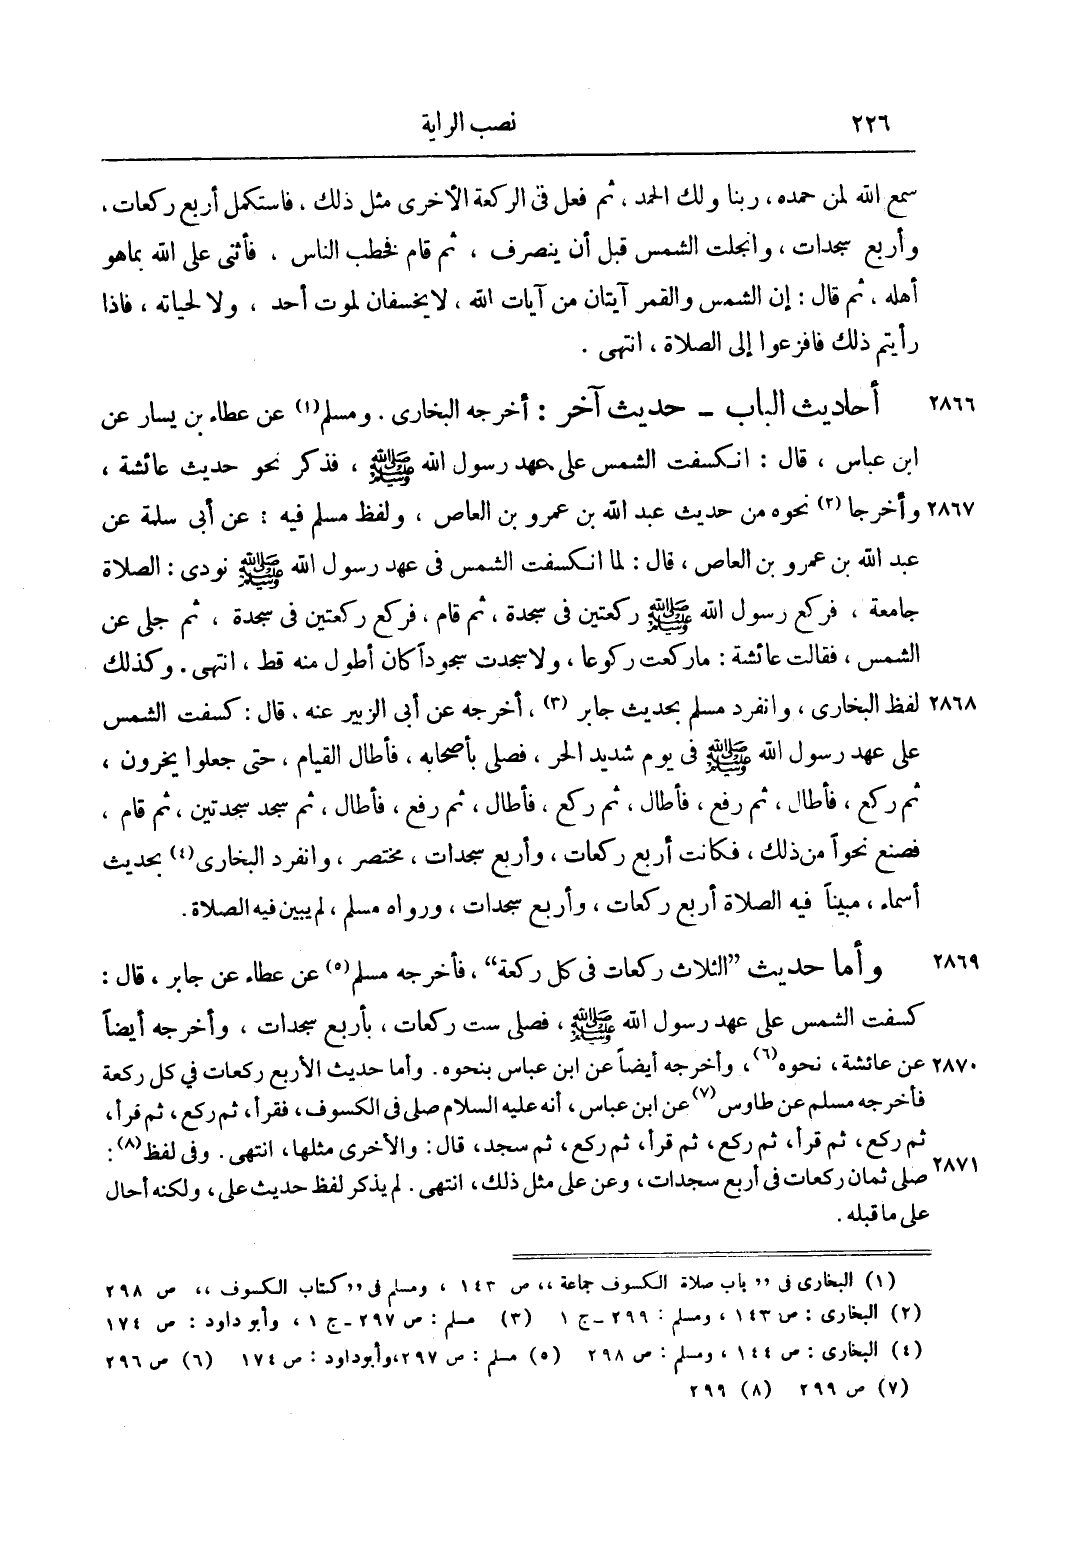 ٢٢٦ نصب الراية
سمع الله لمن حمده، ربنا ولك الحمد، ثم فعل فى الركعة الأخرى مثل ذلك، فاستكمل أربع ركعات،
وأربع سجدات، وانجلت الشمس قبل أن ينصرف، ثم قام فخطب الناس، فأثنى على الله بماهو
أهله، ثم قال: إن الشمس والقمر آيتان من آيات الله، لايخسفان لموت أحد، ولا لحياته، فاذا
رأيتم ذلك فافزعوا إلى الصلاة، انتهى.
٢٨٦٦ أحاديث الباب - حديث آخر: أخرجه البخارى. ومسلم(١) عن عطاء بن يسار عن
ابن عباس، قال: انكسفت الشمس على عهد رسول الله ﷺ، فذكر نحو حديث عائشة،
٢٨٦٧ وأخرجا(٢) نحوه من حديث عبد الله بن عمرو بن العاص، ولفظ مسلم فيه: عن أبى سلمة عن
عبد الله بن عمرو بن العاص، قال: لما انكسفت الشمس فى عهد رسول الله ﷺ نودى: الصلاة
جامعة، فركع رسول الله ﷺ ركعتين فى سجدة، ثم قام، فركع ركعتين فى سجدة، ثم جلى عن
الشمس، فقالت عائشة: ماركعت ركوعا، ولاسجدت سجوداً كان أطول منه قط، انتهى. وكذلك
٢٨٦٨ لفظ البخارى، وانفرد مسلم بحديث جابر(٣)، أخرجه عن أبى الزبير عنه، قال: كسفت الشمس
على عهد رسول الله ﷺ فى يوم شديد الحر، فصلى بأصحابه، فأطال القيام، حتى جعلوا يخرون،
ثم ركع، فأطال، ثم رفع، فأطال، ثم ركع، فأطال، ثم رفع، فأطال، ثم سجد سجدتين، ثم قام،
فصنع نحواً من ذلك، فكانت أربع ركعات، وأربع سجدات، مختصر، وانفرد البخارى(٤) بحديث
أسماء، مبيناً فيه الصلاة أربع ركعات، وأربع سجدات، ورواه مسلم، لم يبين فيه الصلاة.
٢٨٦٩ وأما حديث ”الثلاث ركعات فى كل ركعة“، فأخرجه مسلم(٥) عن عطاء عن جابر، قال:
كسفت الشمس على عهد رسول الله ﷺ، فصلى ست ركعات، بأربع سجدات، وأخرجه أيضاً
٢٨٧٠ عن عائشة، نحوه(٦)، وأخرجه أيضاً عن ابن عباس بنحوه. وأما حديث الأربع ركعات في كل ركعة
فأخرجه مسلم عن طاوس(٧) عن ابن عباس، أنه عليه السلام صلى فى الكسوف، فقرأ، ثم ركع، ثم قرأ،
ثم ركع، ثم قرأ، ثم ركع، ثم قرأ، ثم ركع، ثم سجد، قال: والأخرى مثلها، انتهى. وفى لفظ(٨):
٢٨٧١ صلى ثمان ركعات فى أربع سجدات، وعن على مثل ذلك، انتهى. لم يذكر لفظ حديث على، ولكنه أحال
على ما قبله.
(١) البخارى فى ,,باب صلاة الكسوف جماعة،، ص ١٤٣، ومسلم فى ,,كتاب الكسوف،، ص ٢٩٨
(٢) البخارى: ص ١٤٣، ومسلم: ٢٩٩ - ج ١ (٣) مسلم: ص ٢٩٧ - ج ١، وأبو داود: ص ١٧٤
(٤) البخارى: ص ١٤٤، ومسلم: ص ٢٩٨ (٥) مسلم: ص ٢٩٧، وأبوداود: ص ١٧٤ (٦) ص ٢٩٦
(٧) ص ٢٩٩ (٨) ٢٩٩